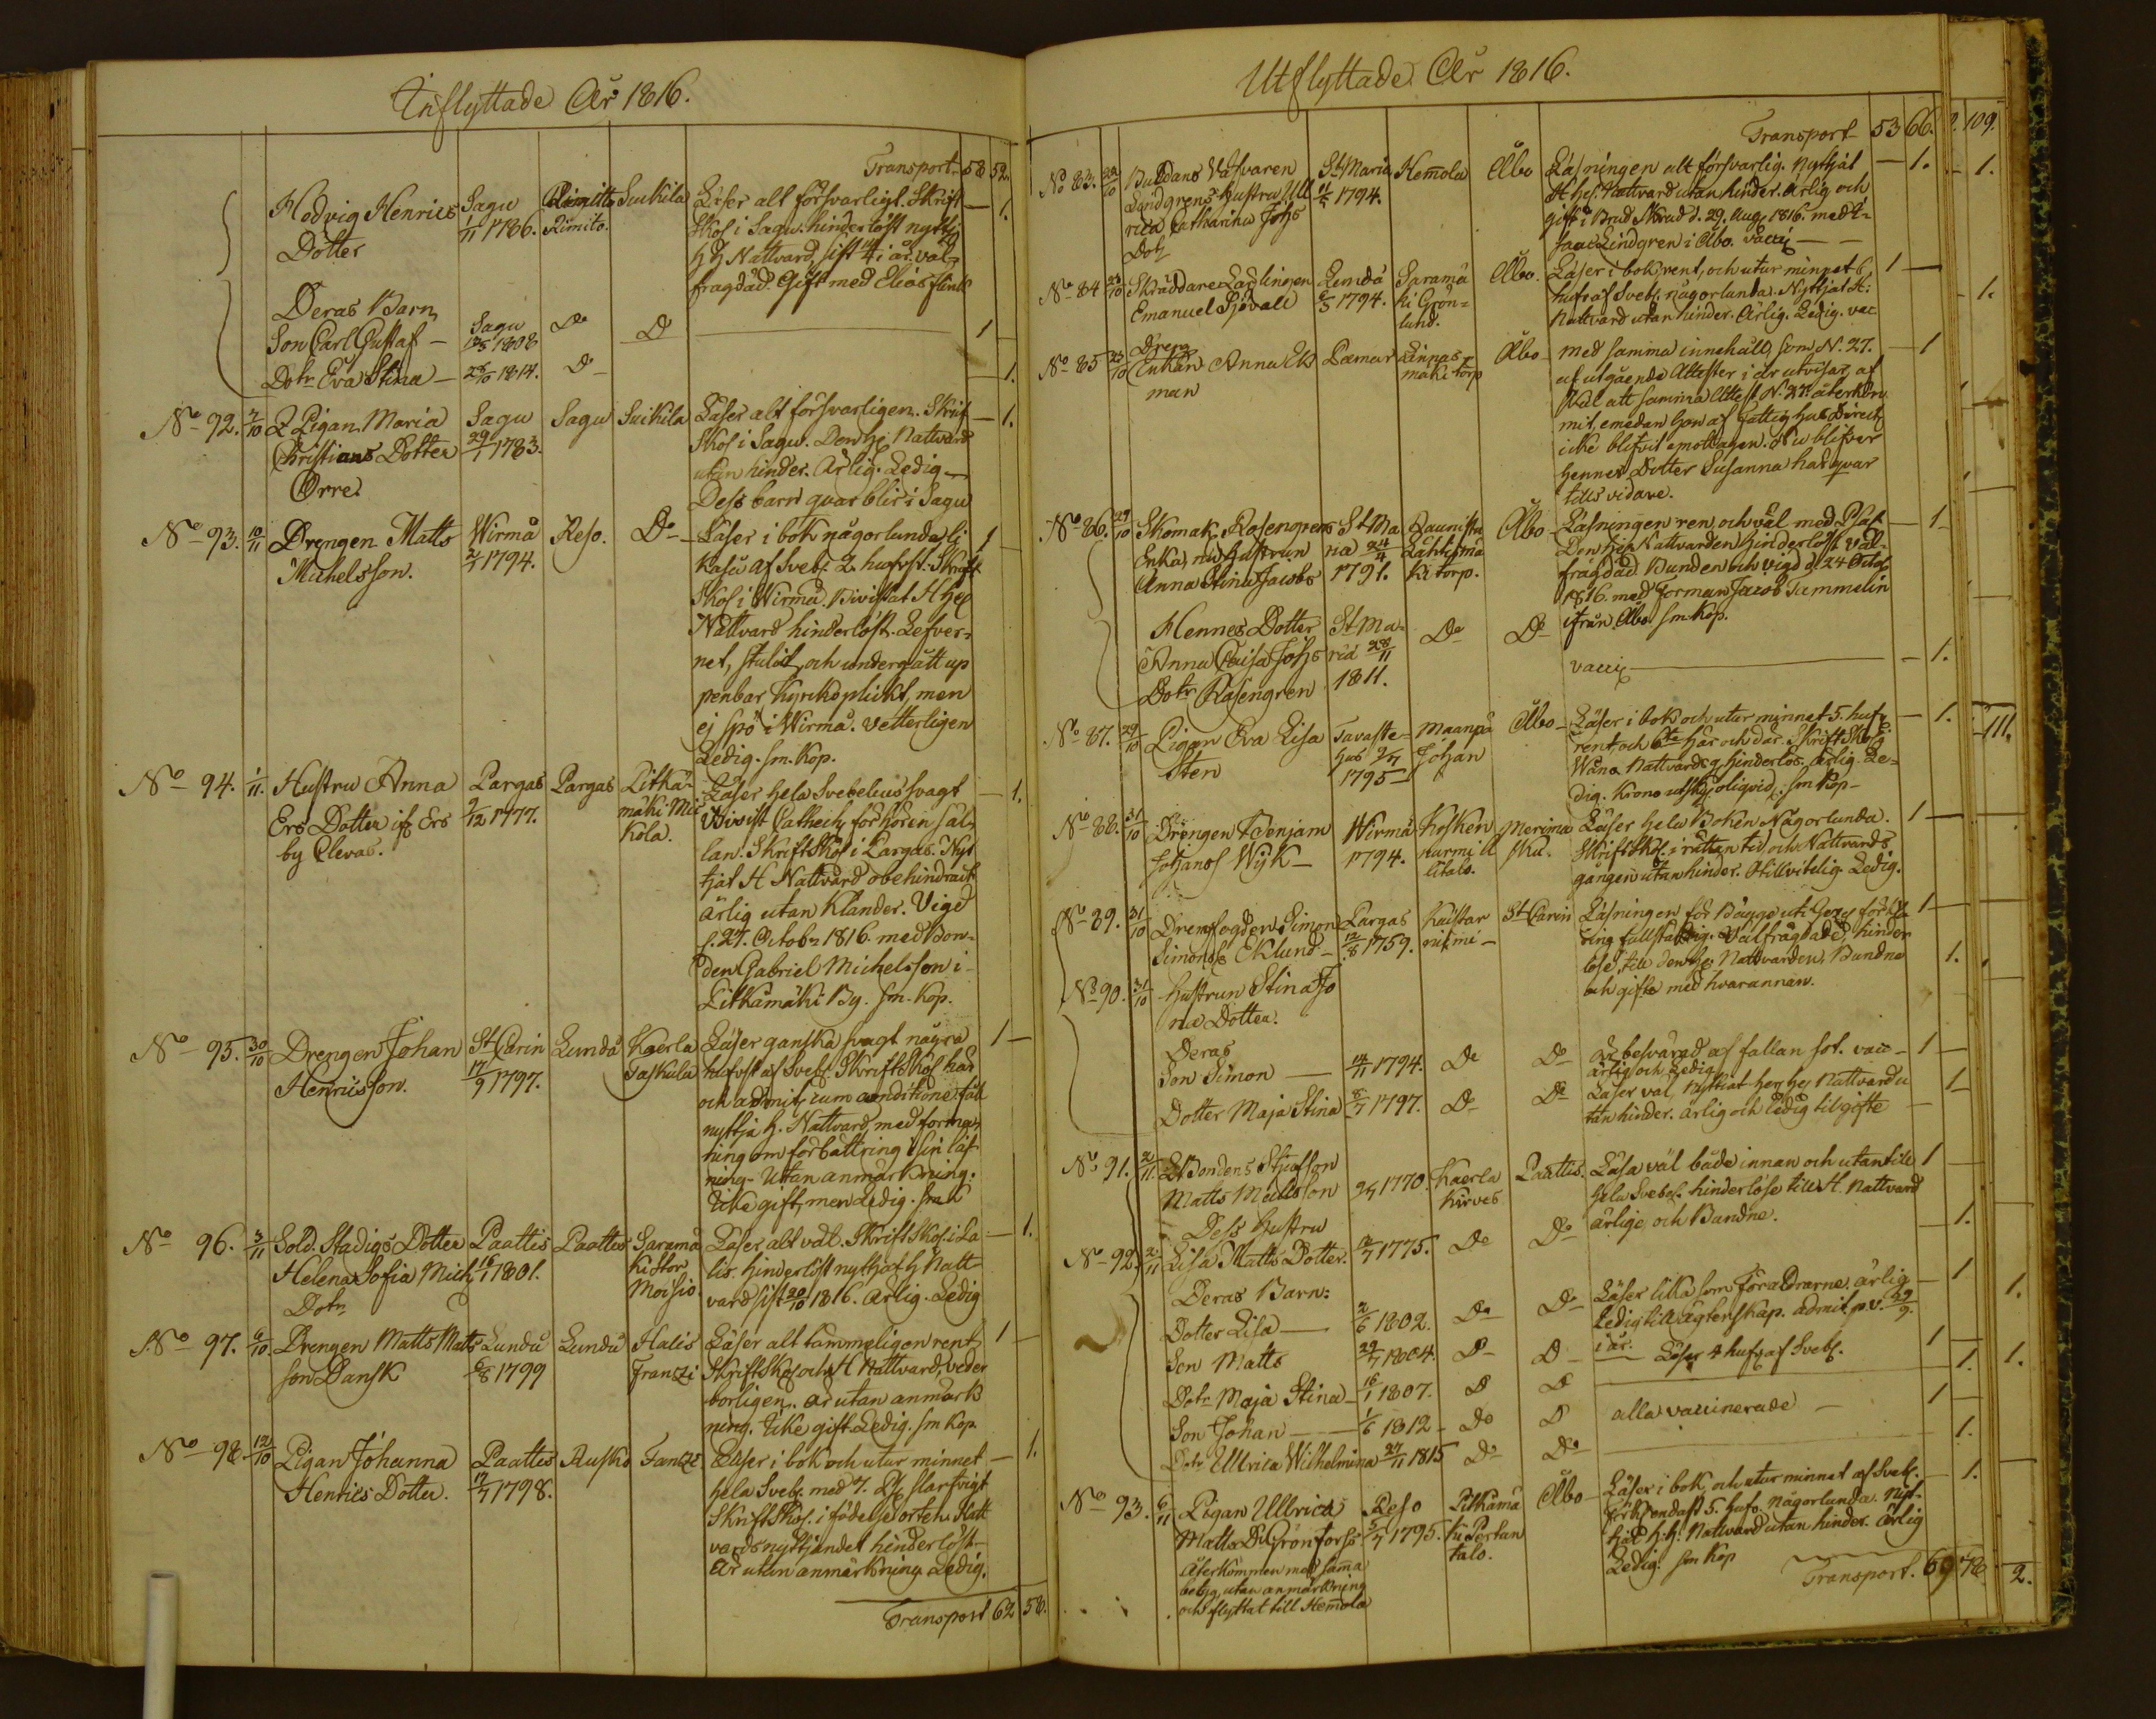 Inflyttade År 1816.
Transport 58 52.
Hedvig Henrics Dotter
Sagu 1/11 1786.
Rimito.
Suikila
Läser alt försvarligt. Skrift
Skol i Sagu. hinderlöst nyttj
H H Nattvard, sist i år. väl-
frägdad. Gift med Elias
1.
Deras Barn
Son Carl Gustaf - Sagu 1808 Do D 1
Dotr Eva Stina - 1814. D 1.
No 92. 2/10 Pigan Maria
Christians Dotter
Orre.
Sagu 29/7 1783.
Sagu
Suikila
Läser alt försvarligen. Skrif
Skol i Sagu. Den H. Nattvard
utan hinder. Ärlig. Ledig
Dess barn qvar blir i Sagu
1.
No 93. 10/11 Drengen Matts
Michelsson.
Wirmå 1794.
Reso.
Do
Läser i bok någorlunda li
kaså af Sveb: 2 hufvst. Skrift
Skol i Wirmå. Bivistat H Hel
Nattvard hinderlöst. Lefver-
net, stulit, och undergått up
penbar kyrkoplickt, men
ej spö i Wirmå. Vetterligen
Ledig. sm. Kop.
1
No 94. 1/11. Hustru Anna
Ers Dotter if. Ers
by Clevas.
Pargas 9/12 1777.
Pargas
Pitkä-
mäki Mic
kola.
Läser hela Svebelius svagt
Bivist Cathech. förhören säl-
lan. Skrift Skol i Pargas. Nyt
tjat H Nattvard obehindradt
ärlig utan klander. Vigd
d. 27. Octobr 1816. med Bon-
den Gabriel Michelsson i
Pitkämäki By. sm. kop.
1.
No 95. 30/10 Drengen Johan
Henricsson.
St Carin 17/9 1797.
Lundå
Kaerla
Taskula
Läser ganska svagt några
hufvst af Sveb. Skrift Skol här
och admit. cum conditione fått
nyttja H. Nattvard, med forma-
ning om förbättring i sin läs-
ning. Utan anmärkning.
Icke gift, men ledig.
1
No 96. 3/11 Sold. Stadigs Dotter
Helena Sofia Mich.
Dotr
Paattis 1801.
Paattis
Saramä
ki
Moisio
Läser alt väl. Skrift Skol. i Pa
tis. hinderlöst nyttjat H Natt
vard sist 20/10 1816. Ärlig. Ledig
1.
No 97. 6/10. Drengen Matts Matts
son Dansk
Lundu 6/8 1799
Lundu
Halis
Frantzi
Läser alt tämmeligen rent
Skrift Skol och H Nattvard veder
börligen. är utan anmärk
ning. Icke gift. Ledig. sm kop
1
No 98. 12/10 Pigan Johanna
Henrics Dotter.
Paattis 17/7 1798.
Rusko
Fantzi
Läser i bok och utur minnet
hela Sveb. med slarfvigt
Skrift Skol. i födelse orten. Natt
vards nyttjandet hinderlöst
är utan anmärkning Ledig.
1.
Transport 62 58.
Utflyttade År 1816.
Transport 53 66.
109.
No 83. 22/10
Lindgrens hustru Ull
rica Catharina Johs
Dotr
St Maria 1794.
Hemola
Åbo
Läsningen alt försvarlig. Nyttjat
H. Hel. Nattvard utan hinder. ärlig och
gift i Brud Skrud d. 29. Aug 1816. med I-
saac Lindgren i Åbo. vacci
1.
No 84 Skräddare Lärlingen
Emanuel Sjövall
Lemdå 1794.
Saramä
ki Grön-
lund.
Åbo.
Läser i bok rent, och utur minnet 6
hufv af Sveb. någorlunda. Nyttjat H.
Nattvard utan hinder. Ärlig. Ledig. vac
1
No 85 Enkan Anna Ek
man
Pemar
Linnas
mäki torp
Åbo
med samma innehåll som N. 27.
af utgående Attester i år utvisar, af
Skäl att samma Attest N. 27. återkom
mit, emedan hon af Fattighus Direct
icke blifvit emottagen. Nu blifver
hennes Dotter Susanna här qvar
tills vidare.
1
No 86. 29/10 Skomak. Rosengrens
Enka, nu hustrun
Anna Stina Jacobs
St Ma
ria 24/4 1791.
Raunistu
Lähtismä
ki torp.
Åbo
Läsningen ren, och väl med
Den H. Nattvarden hinderlöst. Väl-
frägdad. Bunden och vigd d. 24 Octob
1816. med Forman Jacob Tammelin
ifrån Åbo. sm. Kop.
1
Hennes Dotter
Anna Caisa Johs
Dotr Rosengren
St Ma-
ria 28/11 1811.
Do
Do
vacci
1.
No 87. 29/10 Pigan Eva Lisa
Sten
Tavaste-
hus 1795
Maanpä
Johan
Åbo
Läser i bok och utur minnet 5. huf.
rent, och 6te här och där. Skrift Skol i
Wånå Nattvards g. hinderlös. ärlig. Le-
dig. Krono utskyl. oliqvid. sm Kop
1.
111.
No 88. 31/10 Drengen Benjam
Johans Wijk
Wirmå 1794.
Kosken
nurmi
litalo.
Merima
sku.
Läser hela Boken Någorlunda.
Skrift Skol. i rättan tid och Nattvards
gången utan hinder. Stillvitelig. Ledig.
1
No 89. 31/10 Drengfogden Simon
Simons Eklund
Pargas 12/8 1759.
St Carin
1
No 90. 31/10 Hustrun Stina Jo
Dotter.
och gifta med hvarannan.
1.
Deras
Son Simon 14/11 1794. Do Do
är besvärad af fallan sot. vacc
ärlig och Ledig
1
Dotter Maja Stina 1797. Do Do
Läser väl, Nyttiat her Hes Nattvard u
tan hinder. ärlig och ledig til gifte
1
No 91. 2/11. Bondens Stjufson
Matts Mattsson
1770.
Kaerla
Kirves
Paattis.
Läsa väl både innan och utantill
hela Svebel. hinderlöse till H. Nattvard
ärlige och Bundne.
1
Dess hustru
No 92. 2/11 Lisa Matts Dotter. 1775. Do Do 1.
Deras Barn:
Dotter Lisa 2/6 1802. Do Do
Läser lika som Föräldrarne. ärlig
ledig till ägtenskap. admit. p. v. 29/9.
i år.
1
Son Matts 1804. D D Läser 4 hufv af Sveb. 1
Dotr Maja Stina 16/1 1807. D D 1.
Son Johan 1/6 1812 Do D alla vaccinerade 1
Dotr Ullrica Wilhelmina 27/11 1815 Do Do 1.
No 93. 6/11 Pigan Ullrica
Matts D. Grönfors
Reso 1795.
Pitkämä
ki Pertun
talo.
Åbo
Läser i bok, och utur minnet af Sveb.
endast 5. hufv. någorlunda. Nyt-
tjat H. H. Nattvard utan hinder. ärlig
Ledig. sm Kop
1.
Återkommen med samma
betyg, utan anmärkning
och flyttat till Hemola
Transport. 69 78.
2.